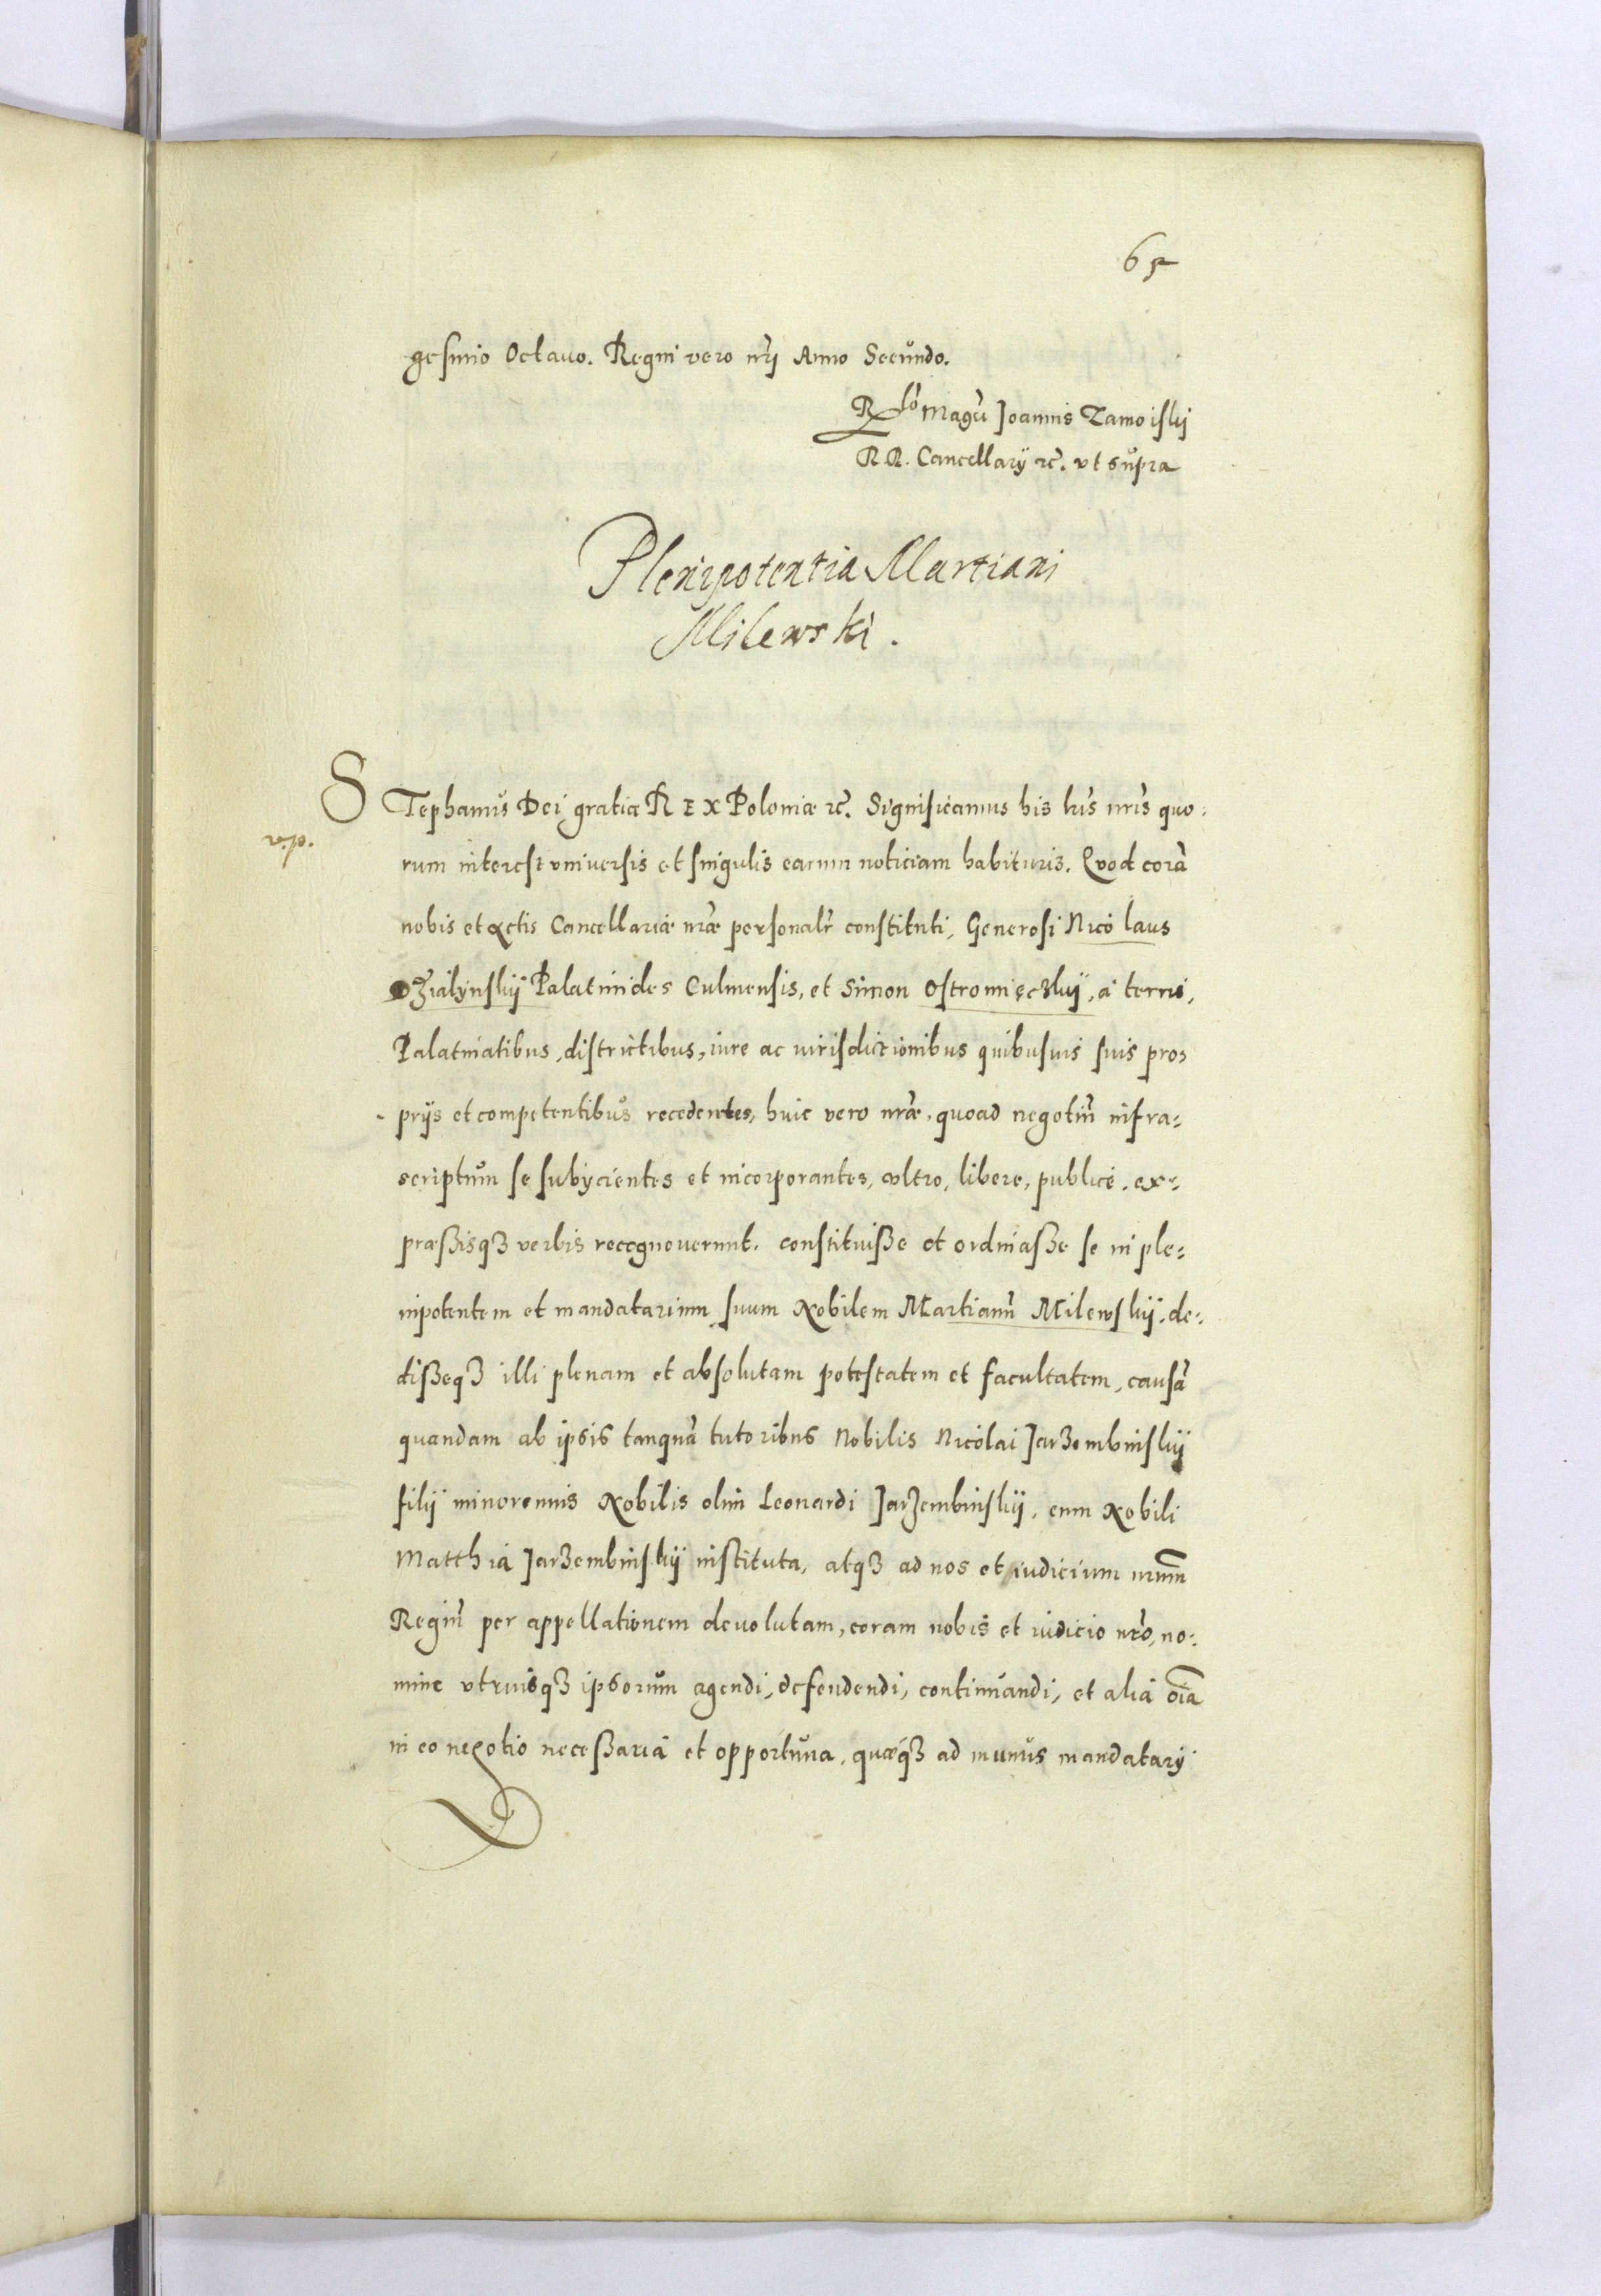 65
gesimo Octauo. Regni vero nrĩ Anno Secŭndo.
Rlõ Magci Joannis Zamoiskij
R.R. Cancellarÿ rc̃. vt sŭpra
Plenipotentia Martiani
Milewski.
STephanŭs Dei gratia REX Poloniæ rc̃. Significamus his lris̃ nris̃ quo-
rum interest vniuersis et singulis earum noticiam habituris. Qvod corã
nobis et Actis Cancellariæ nræ̃ personalr̃ constituti, Generosi Nicolaus
Dzialÿnskij Palatinides Culmensis, et Simon Ostromięczkij, à terris,
Palatinatibus, districtibus, iure ac iurisdictionibus quibusuis suis pro-
prijs et competentibŭs recedentes, huic vero nræ̃, quoad negotiũ infra-
scriptŭm se subÿcientes et incorporantes, vltro, libere, publicè, ex-
præßisqȝ verbis recognouerunt, constituiße et ordinaße se in ple-
nipotentem et mandatarium suum Nobilem Martianũ Milewskij, de-
dißeqȝ illi plenam et absolutam potestatem et facultatem, causã
quandam ab ipsis tanquã tutoribus Nobilis Nicolai Jarzembinskij
filij minorennis Nobilis olim Leonardi Jarzembinskij, cum Nobili
Matthia Jarzembinskij instituta, atqȝ ad nos et iudicium nrum̃
Regiũ per appellationem deuolutam, coram nobis et iudicio nrõ, no-
mine vtriusqȝ ipsorŭm agendi, defendendi, continŭandi, et alia oĩa
in eo negotio neceßaria et opportŭna, quæqȝ ad munŭs mandatarÿ